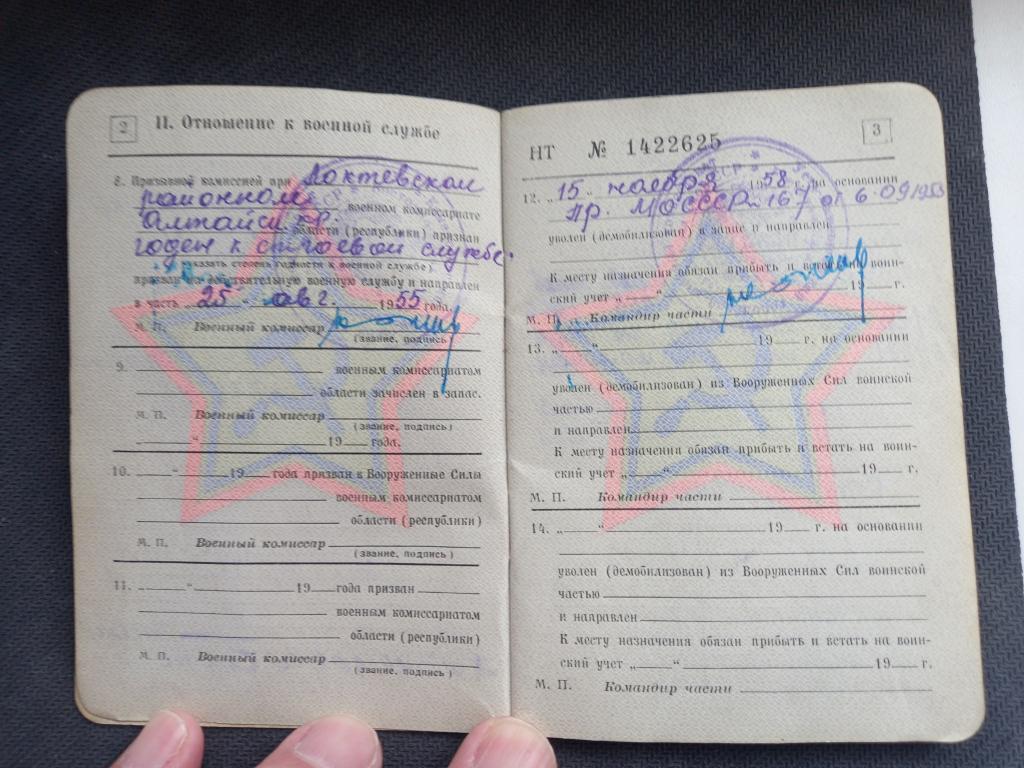 2 II. Отношение к военной службе
8. Призывной комиссией при Локтевском
районном военном комиссариате
Алтайск. кр. области (республики) признан
годен к строевой службе.
(указать степень годности к военной службе)
призван на действительную военную службу и направлен
в часть „25“ авг. 1955 года.
М. П. Военный комиссар
(звание, подпись)
9. военным комиссариатом
области зачислен в запас.
М. П. Военный комиссар
(звание, подпись)
„ “ 19 года.
10. „ “ 19 года призван в Вооруженные Силы
военным комиссариатом
области (республики)
М. П. Военный комиссар
(звание, подпись)
11. „ “ 19 года призван
военным комиссариатом
области (республики)
М. П. Военный комиссар
(звание, подпись)
НТ № 1422625 3
12. „15“ ноября 1958 г. на основании
Пр. МО СССР № 167 от 6.09
уволен (демобилизован) в запас и направлен
К месту назначения обязан прибыть и встать на воин-
ский учет „ “ 19 г.
М. П. Командир части
13. „ “ 19 г. на основании
уволен (демобилизован) из Вооруженных Сил воинской
частью
и направлен
К месту назначения обязан прибыть и встать на воин-
ский учет „ “ 19 г.
М. П. Командир части
14. „ “ 19 г. на основании
уволен (демобилизован) из Вооруженных Сил воинской
частью
и направлен
К месту назначения обязан прибыть и встать на воин-
ский учет „ “ 19 г.
М. П. Командир части